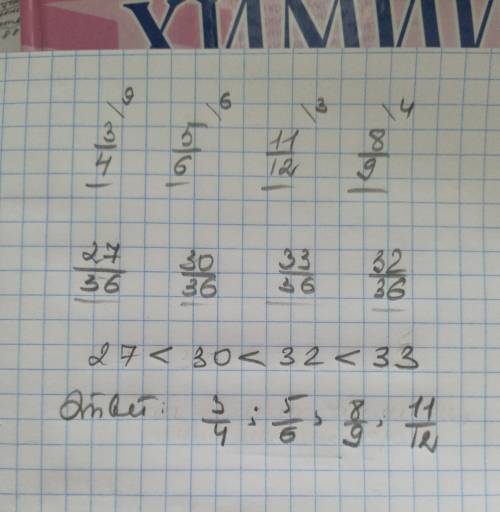 ХИМИЯ
3/4 \9 5/6 \6 11/12 \3 8/9 \4
27/36 30/36 33/36 32/36
27 < 30 < 32 < 33
Ответ: 3/4 ; 5/6 ; 8/9 ; 11/12